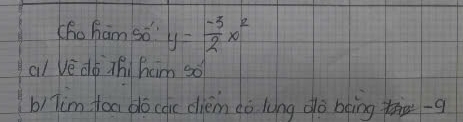 Cho hàm số: y = \frac{-3}{2} x^2
a/ Vẽ đồ thị hàm số
b/ Tìm toạ độ các điểm có tung độ bằng -9